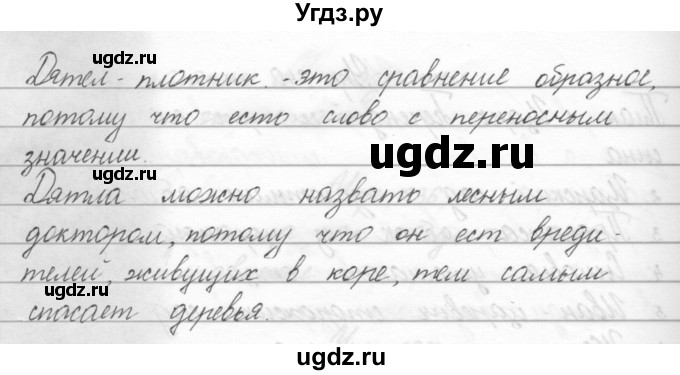 Угдз.ру
ugdz.ru ugdz.ru
Дятел - плотник. - это сравнение образное,
потому что есть слово с переносным
значении.
ugdz.ru
ugdz.ru
Дятла можно назвать лесным
доктором, потому что он ест вреди-
телей, живущих в коре, тем самым
ugdz.ru ugdz.ru
спасает деревья.
ugdz.ru